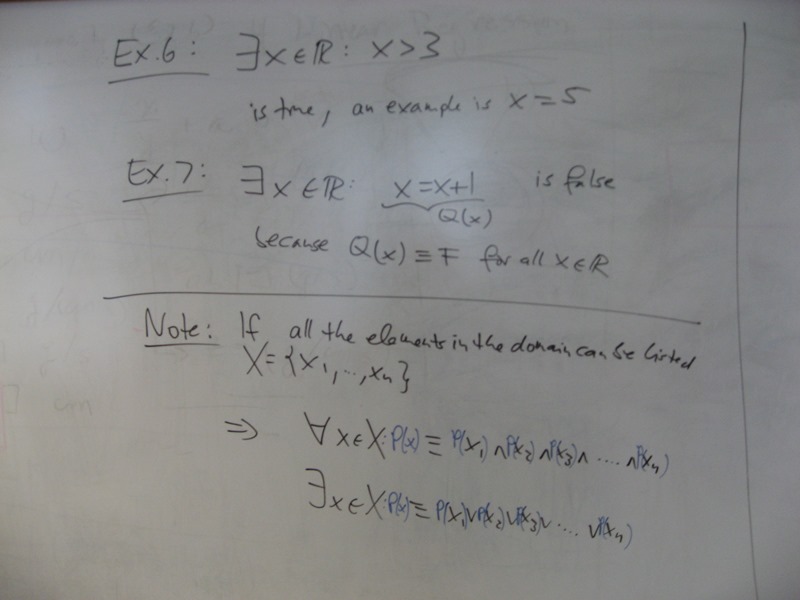 Ex.6: ∃x∈ℝ: x>3
is true, an example is x=5
Ex.7: ∃x∈ℝ: x=x+1 is false
Q(x)
because Q(x)≡F for all x∈ℝ
Note: If all the elements in the domain can be listed
X={x₁,...,xₙ}
⇒ ∀x∈X:P(x)≡P(x₁)∧P(x₂)∧P(x₃)∧....∧P(xₙ)
∃x∈X:P(x)≡P(x₁)∨P(x₂)∨P(x₃)∨....∨P(xₙ)